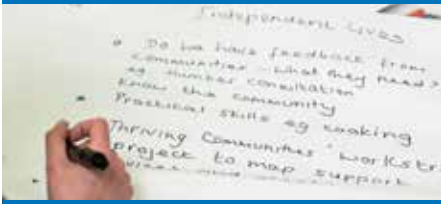 Independent Lives
Do we have feedback from
communities - what they need?
eg number consultation
Know the community
Practical skills eg cooking
'Thriving Communities' workstr
project to map support